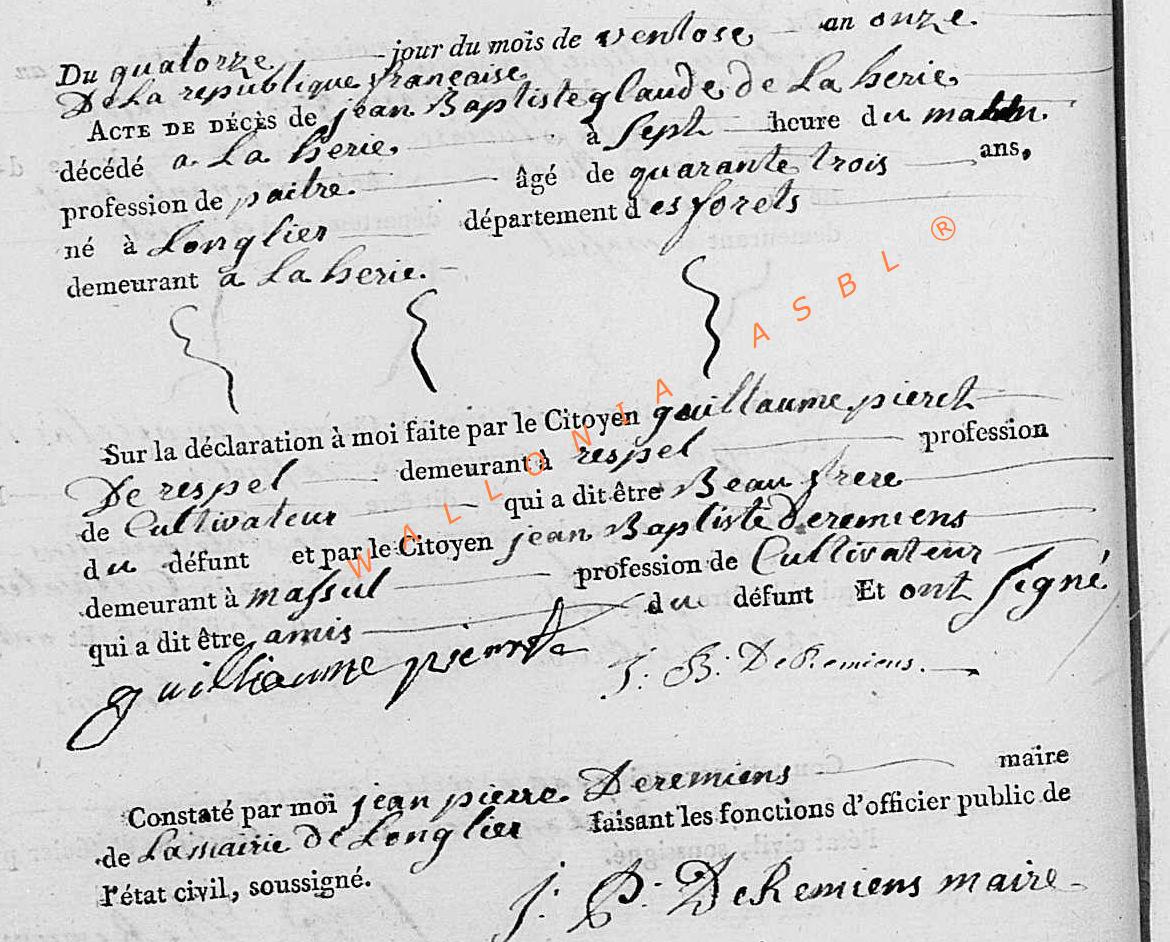 Du quatorze jour du mois de ventose an onze.
De La republique française
ACTE DE DÉCÈS de jean Baptiste glaude de La herie
décédé a La herie. à sept heure du matin.
profession de paitre. âgé de quarante trois ans,
né à Longlier département des forets
demeurant a La herie.
Sur la déclaration à moi faite par le Citoyen guillaume pieret
De respel demeurant à respel profession
de Cultivateur qui a dit être Beau frere
du défunt et par le Citoyen jean Baptiste Deremiens
demeurant à massul profession de Cultivateur
qui a dit être amis du défunt Et ont signé
guilliaume J: B: DeRemiens.
Constaté par moi jean pierre Deremiens maire
de La mairie de Longlier faisant les fonctions d'officier public de
l'état civil, soussigné.
J: P: DeRemiens maire
WALLONIA ASBL ®